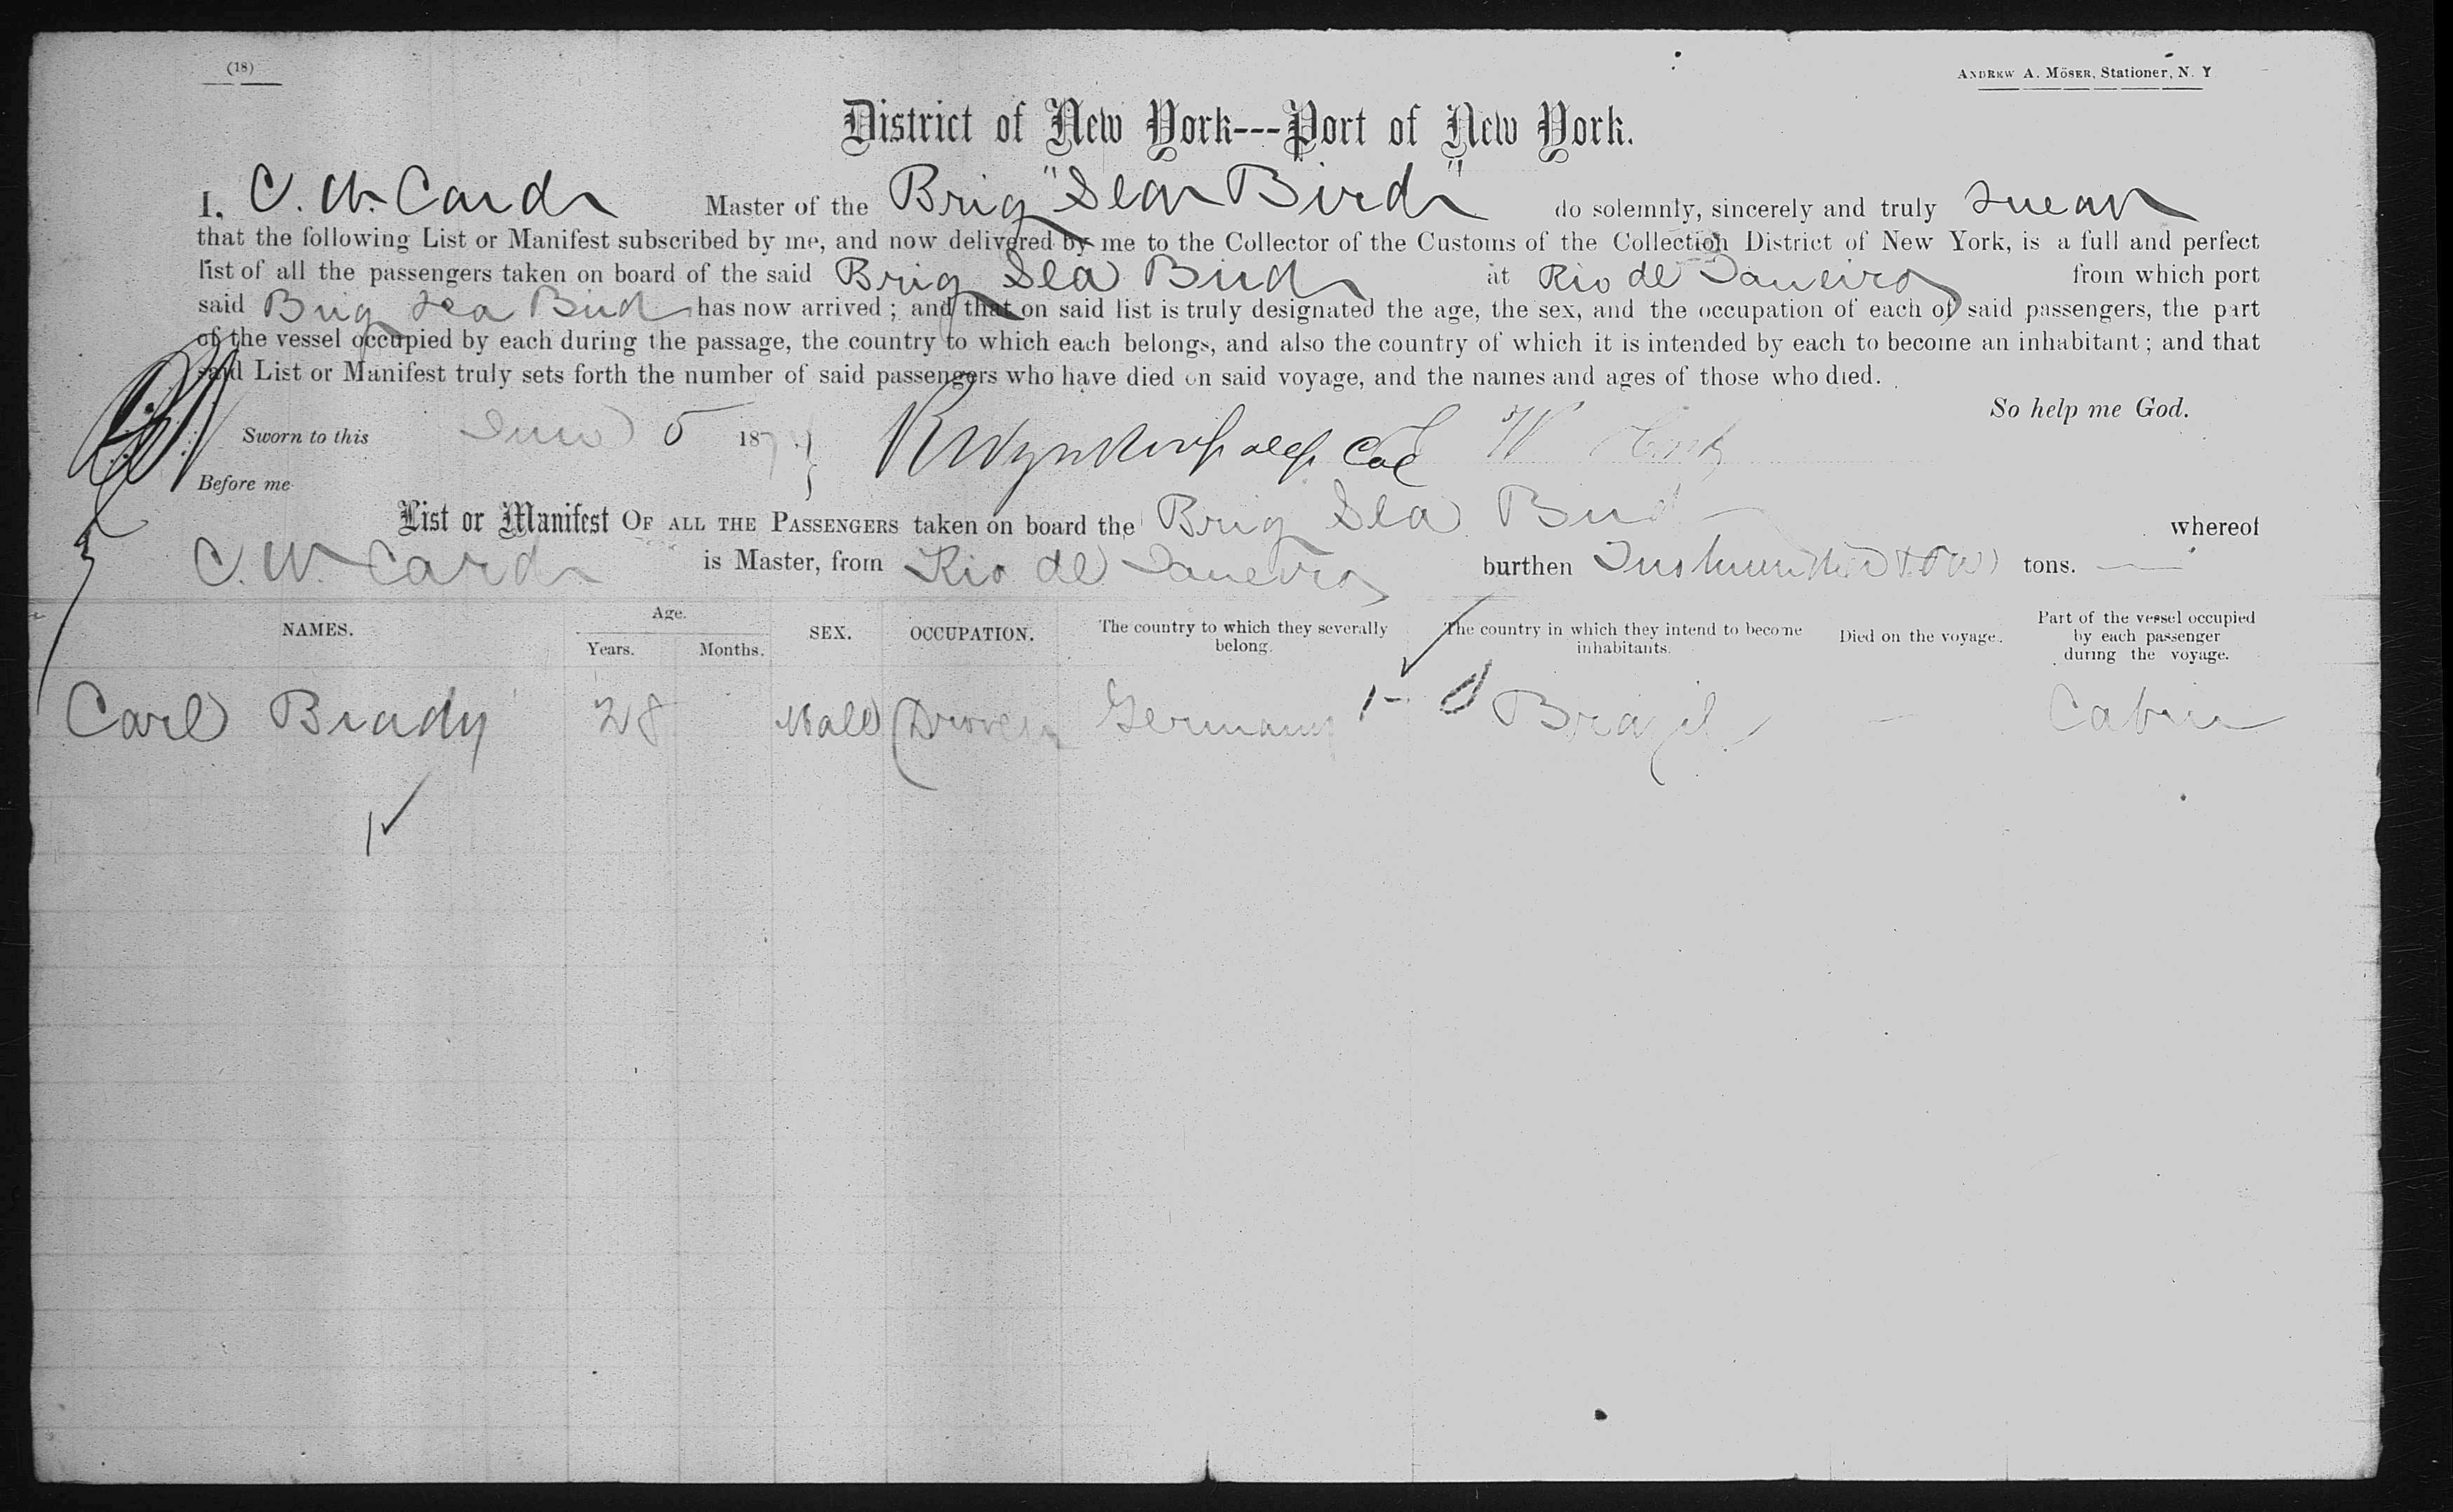 (18)
ANDREW A. MÖSER, Stationer, N. Y
District of New York---Port of New York.
I, C. W. Card Master of the Brig "Sea Bird" do solemnly, sincerely and truly swear
that the following List or Manifest subscribed by me, and now delivered by me to the Collector of the Customs of the Collection District of New York, is a full and perfect
list of all the passengers taken on board of the said Brig Sea Bird at Rio de Janeiro from which port
said Brig Sea Bird has now arrived; and that on said list is truly designated the age, the sex, and the occupation of each of said passengers, the part
of the vessel occupied by each during the passage, the country to which each belongs, and also the country of which it is intended by each to become an inhabitant; and that
said List or Manifest truly sets forth the number of said passengers who have died on said voyage, and the names and ages of those who died.
So help me God.
Sworn to this June 5 187
Before me
List or Manifest OF ALL THE PASSENGERS taken on board the Brig Sea Bird whereof
C. W. Card is Master, from Rio de Janeiro burthen tons.
NAMES. Age. Years. Months. SEX. OCCUPATION. The country to which they severally belong. The country in which they intend to become inhabitants. Died on the voyage. Part of the vessel occupied by each passenger during the voyage.
Carl Brady 28 Male Germany Brazil Cabin